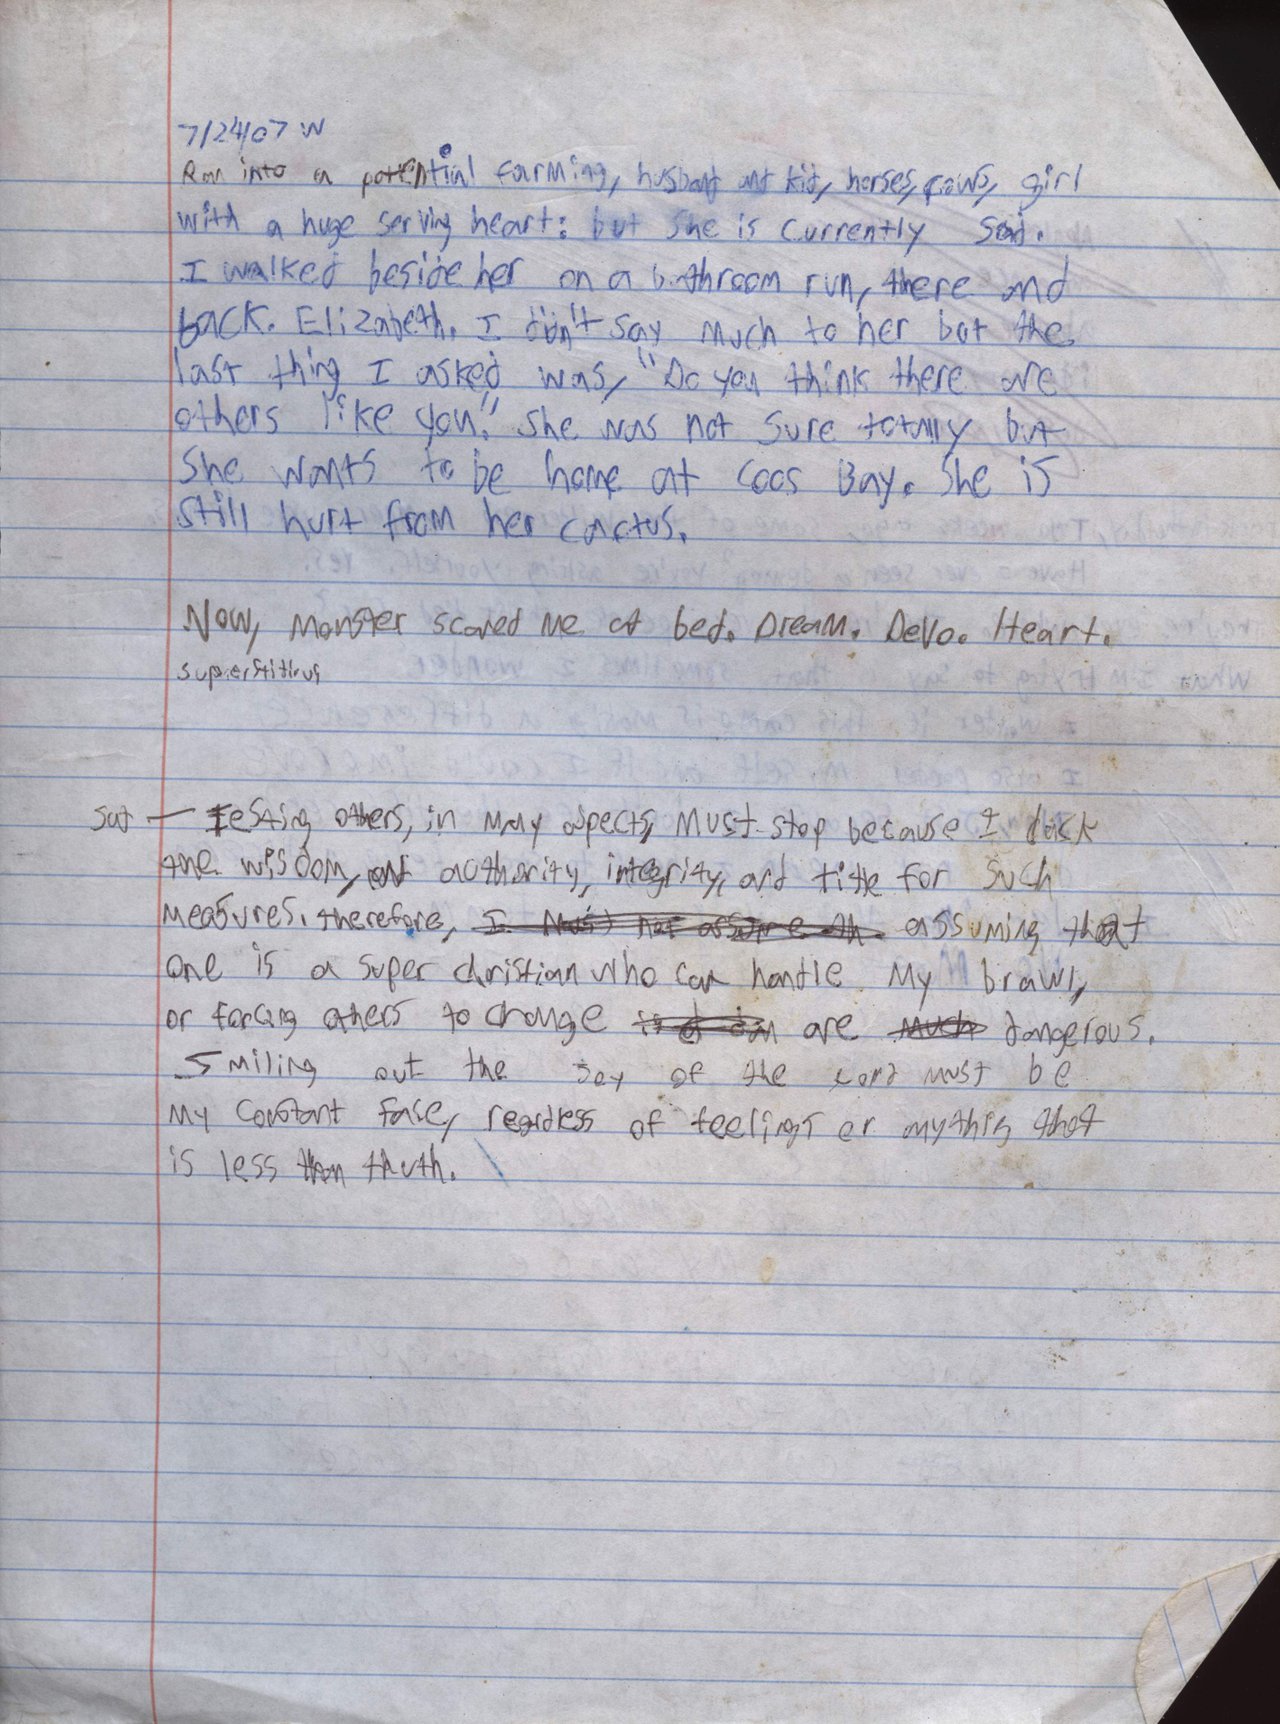 7/24/07 W
Ran into a potential farming, husband and kid, horses, cows, girl
with a huge serving heart: but she is currently sad.
I walked beside her on a bathroom run, there and
back. Elizabeth. I didn't say much to her but the
last thing I asked was, "Do you think there are
others like you." She was not sure totally but
she wants to be home at Coos Bay. She is
still hurt from her cactus.
Now, Monster scared me at bed. Dream. Devo. Heart.
superstitius
Sat — Testing others, in many aspects, must stop because I lack
the wisdom, and authority, integrity, and title for such
measures. therefore, I must not assume th. assuming that
one is a super christian who can handle my brawl,
or forcing others to change are much dangerous.
Smiling out the joy of the Lord must be
my constant face, regardless of feelings or anything that
is less than thuth.